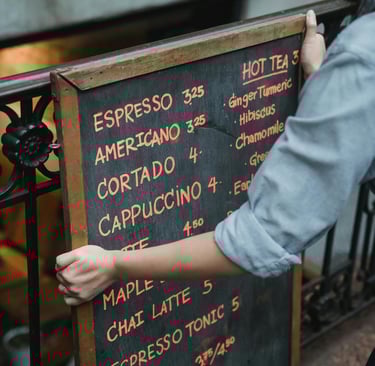 ESPRESSO 3.25
AMERICANO 3.25
CORTADO 4.
CAPPUCCINO 4.
4.50
MAPLE
CHAI LATTE 5
ESPRESSO TONIC 5
3.75/4.50
HOT TEA 3
Ginger Turmeric
Hibiscus
Chamomile